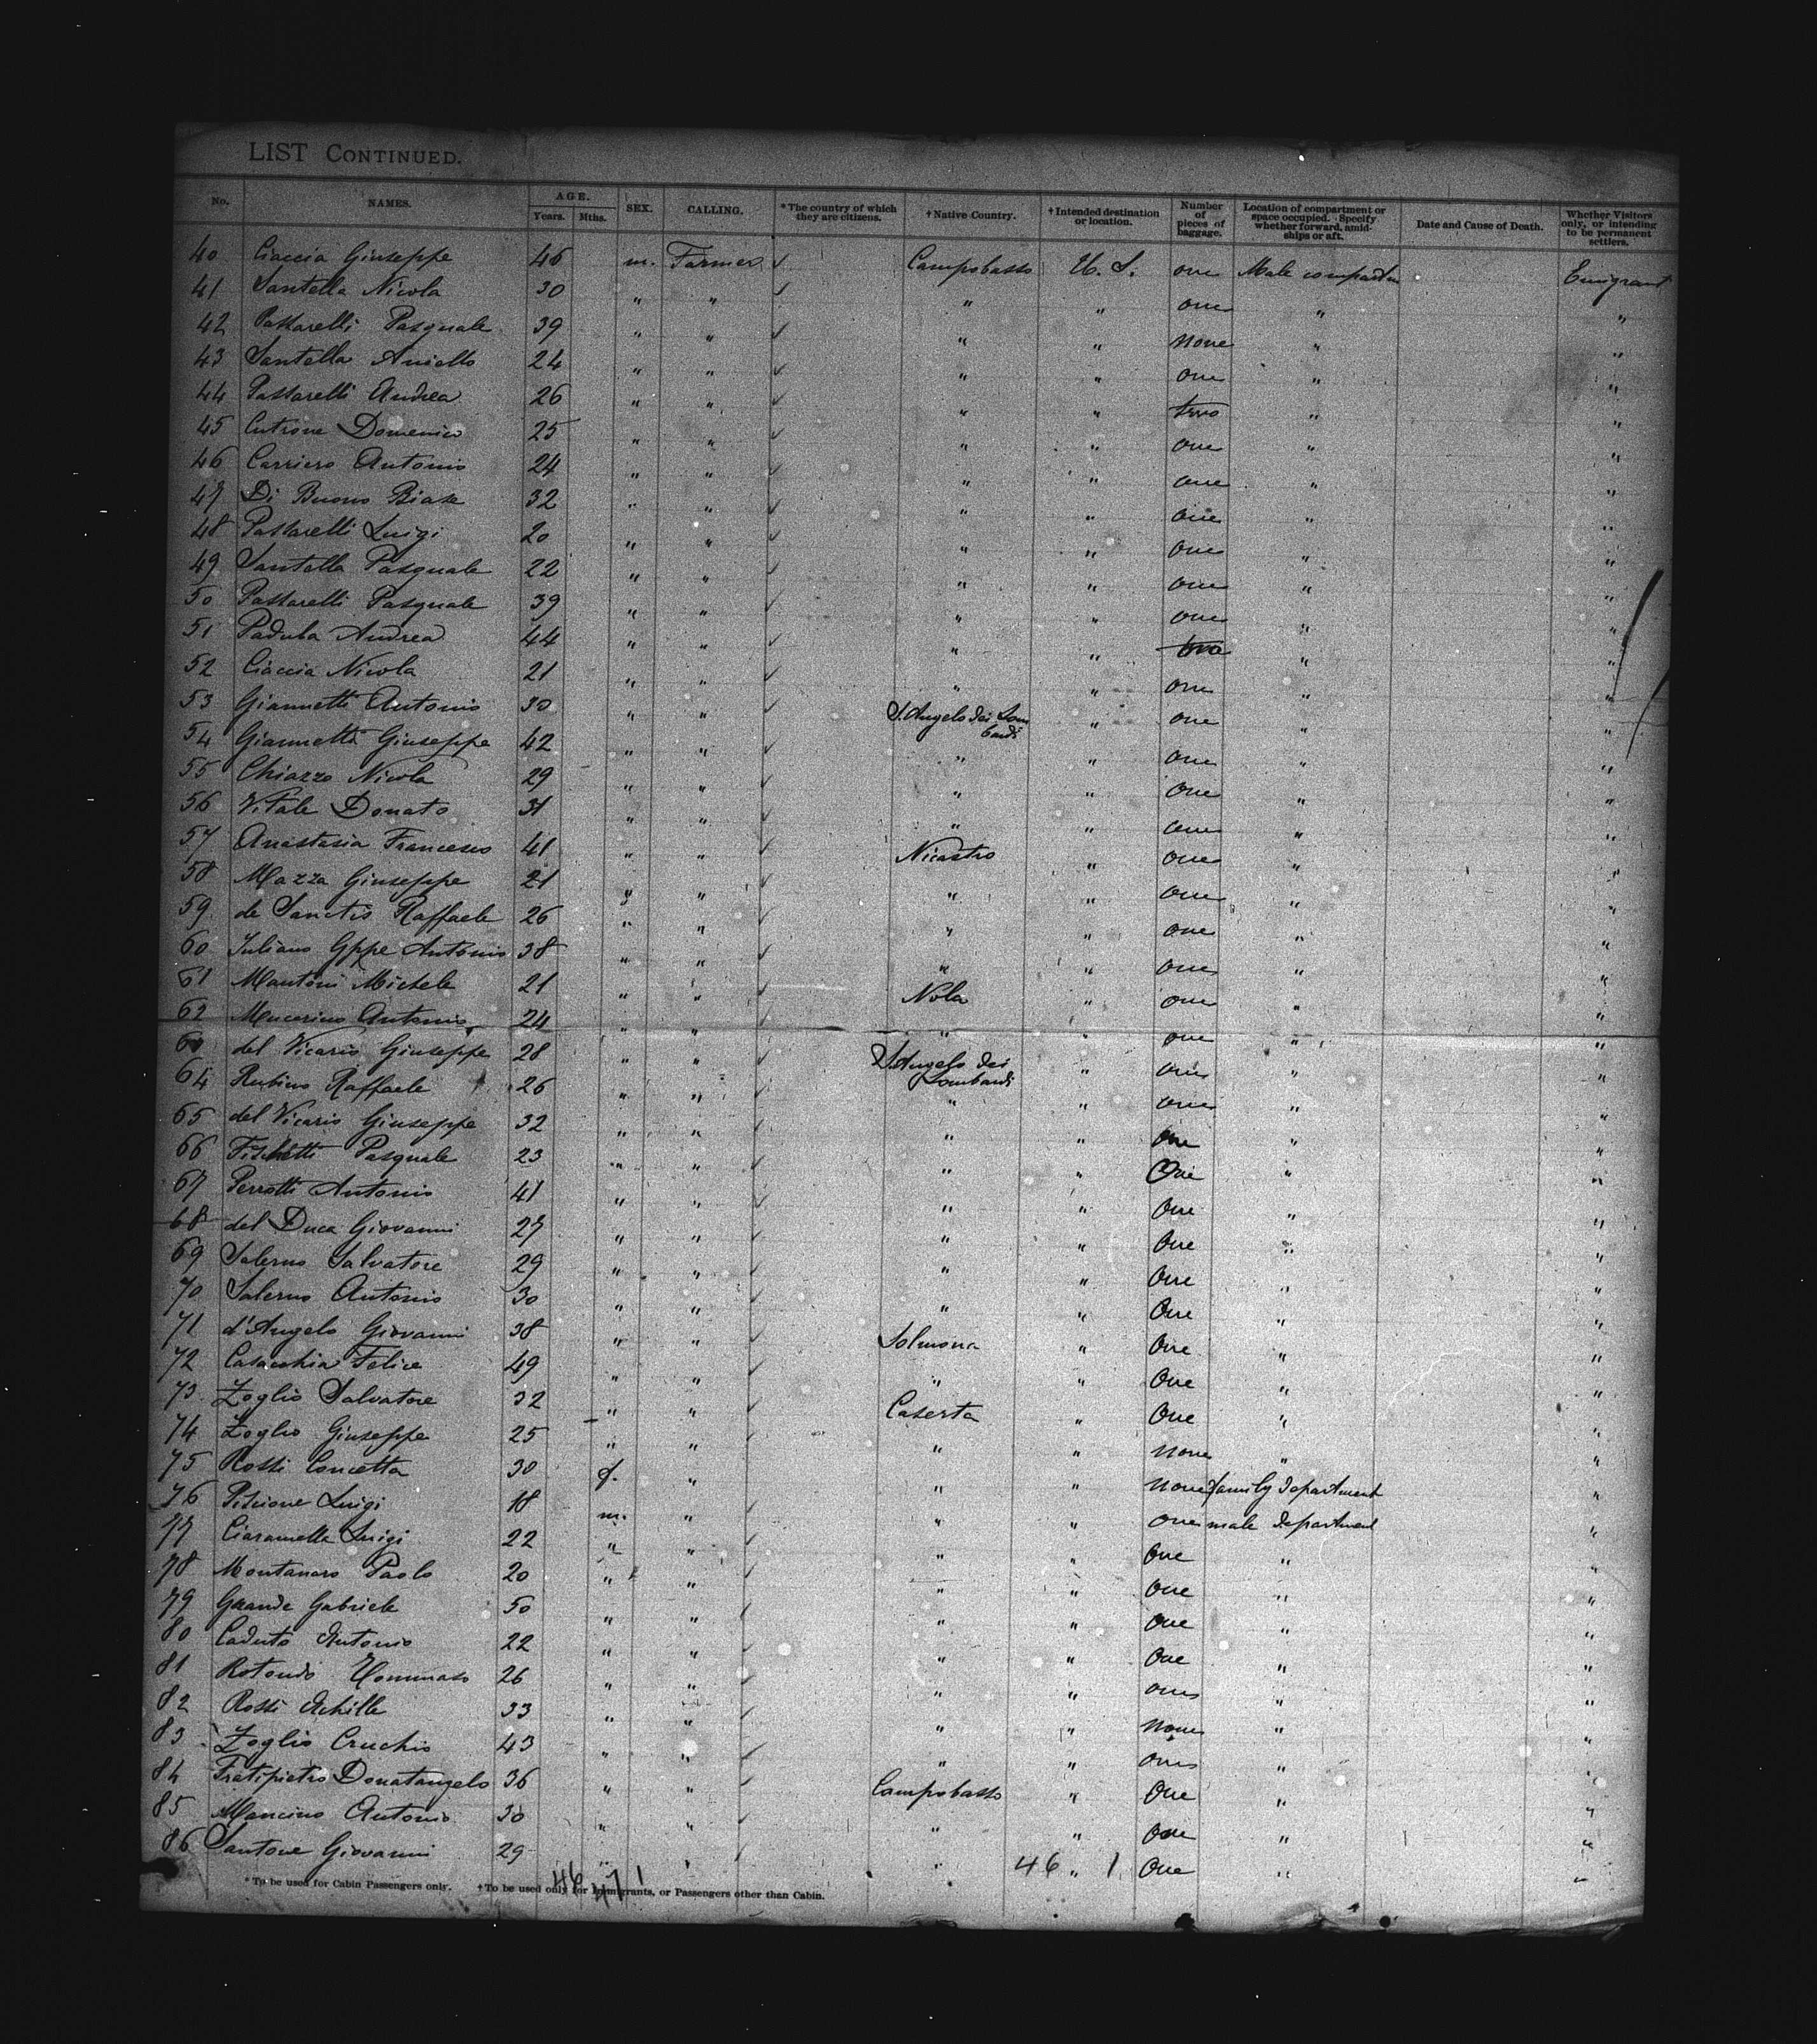 LIST CONTINUED.
No. NAMES. AGE. Years. Mths. SEX. CALLING. * The country of which they are citizens. † Native Country. † Intended destination or location. Number of pieces of baggage. Location of compartment or space occupied. Specify whether forward, amidships or aft. Date and Cause of Death. Whether Visitors only, or intending to be permanent settlers.
40 Ciaccia Giuseppe 46 m. Farmer ✓ Campobasso U. S. one Male Emigrant
41 Santella Nicola 30 " " ✓ " " one " "
42 Passarelli Pasquale 39 " " ✓ " " none " "
43 Santella Aniello 24 " " ✓ " " one " "
44 Passarelli Andrea 26 " " ✓ " " two " "
45 Cutrone Domenico 25 " " ✓ " " one " "
46 Carriero Antonio 24 " " ✓ " " one " "
47 Di Buono Biase 32 " " ✓ " " one " "
48 Passarelli Luigi 20 " " ✓ " " one " "
49 Santella Pasquale 22 " " ✓ " " one " "
50 Passarelli Pasquale 39 " " ✓ " " one " "
51 Padula Andrea 44 " " ✓ " " two " "
52 Ciaccia Nicola 21 " " ✓ " " one " "
53 Giannetti Antonio 30 " " ✓ S. Angelo dei Lombardi " one " "
54 Giannetti Giuseppe 42 " " ✓ " " one " "
55 Chiazzo Nicola 29 " " ✓ " " one " "
56 Vitale Donato 31 " " ✓ " " one " "
57 Anastasia Francesco 41 " " ✓ Nicastro " one " "
58 Mazza Giuseppe 21 " " ✓ " " one " "
59 de Sanctis Raffaele 26 " " ✓ " " one " "
60 Iuliano Gppe Antonio 38 " " ✓ " " one " "
61 Mantoni Michele 21 " " ✓ Nola " one " "
62 Mucerino Antonio 24 " " ✓ " " one " "
del Vicario Giuseppe 28 " " ✓ S. Angelo dei Lombardi " one " "
64 Rubino Raffaele 26 " " ✓ " " one " "
65 del Vicario Giuseppe 32 " " ✓ " " one " "
66 Fischetti Pasquale 23 " " ✓ " " One " "
67 Perrotti Antonio 41 " " ✓ " " One " "
68 del Duca Giovanni 27 " " ✓ " " One " "
69 Salerno Salvatore 29 " " ✓ " " One " "
70 Salerno Antonio 30 " " ✓ " " One " "
71 d'Angelo Giovanni 38 " " ✓ Solmona " One " "
72 Casacchia Felice 49 " " ✓ " " One " "
73 Zoglio Salvatore 32 " " ✓ Caserta " One " "
74 Zoglio Giuseppe 25 " " ✓ " " none " "
75 Rossi Concetta 30 f. " " " none family department "
76 Piscione Luigi 18 m. " " one male department "
77 Ciaramella Luigi 22 " " ✓ " " One " "
78 Montanaro Paolo 20 " " ✓ " " One " "
79 Grande Gabriele 50 " " ✓ " " One " "
80 Caduto Antonio 22 " " ✓ " " One " "
81 Rotondo Tommaso 26 " " ✓ " " one " "
82 Rossi Achille 33 " " ✓ " " none " "
83 Zoglio 43 " " ✓ " " one " "
84 Fratipietro Donatangelo 36 " " ✓ Campobasso " One " "
85 Mancino Antonio 30 " " ✓ " " One " "
86 Santone Giovanni 29 " " ✓ " " One " "
46 1
46 47 1
* To be used for Cabin Passengers only. † To be used only for Immigrants, or Passengers other than Cabin.